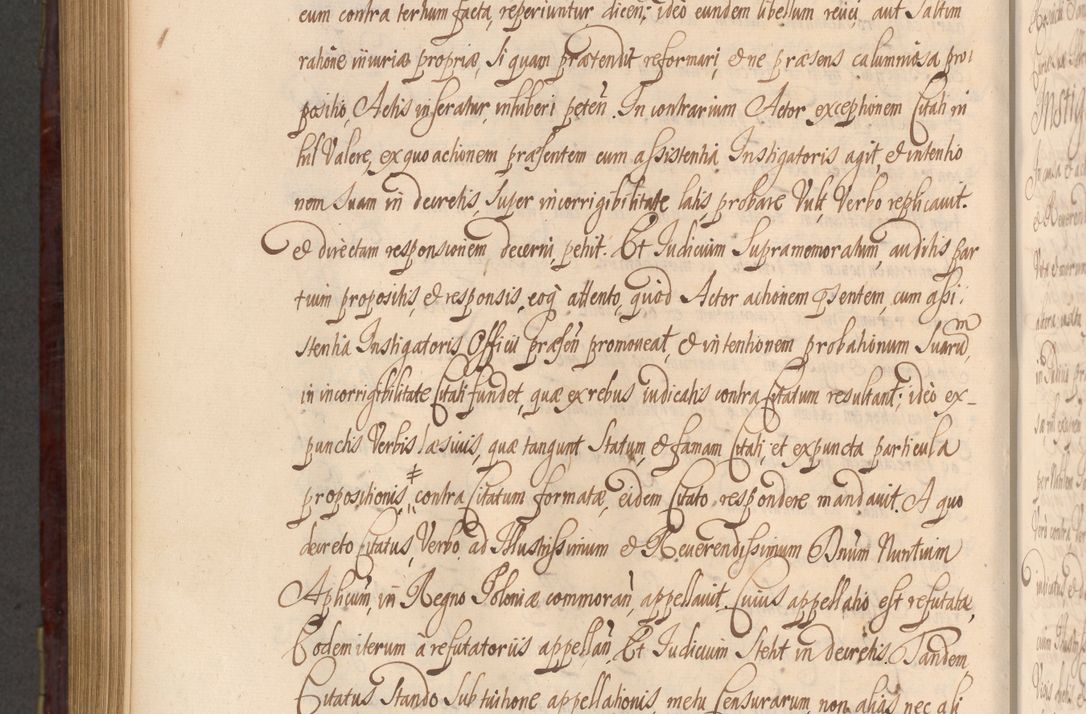 eum contra tertium facta, reperiuntur dicen: ideo eundem libellum reijci, aut Saltim
ratione iniuriæ propriæ, Si quam prætendit reformari, et ne præsens calumniosa pro
positio, Actis inseratur, inhiberi peteñ. In contrarium Actor exceptionem Citati ni
hil Valere, ex quo actionem præsentem cum assistentia Instigatoris agit, et intentio
nem Suam in decretis, Super incorrigibilitate latis, probare Vult, Verbo replicauit.
et directam responsionem decerni, petijt. Et Iudicium Supramemoratum, auditis par
tium propositis, et responsis, eoq attento, quòd Actor actionem pñsentem, cum assi
stentia Instigatoris Officij præseñ promoueat, et intentionem probationum Suarum,
in incorrigibilitate Citati fundet, quæ ex rebus iudicatis contra Citatum resultant: ideò ex-
punctis Verbis læsiuis, quæ tangunt Statum, et famam Citati, et expuncta particula
propositionis, contra Citatum formatæ, eidem Citato respondere mandauit. A quo
decreto Citatus, Verbo, ad Illustrissimum et Reuerendissimum Dnum Nuntium
Aplicum, in Regno Poloniæ commorañ, appellauit. Cuius appellatio est refutata,
Eodem iterum à refutatorijs appellañ. Et Iudicium Stetit in decretis. Tandem
Citatus Stando Sub tuitione appellationis, metu Censurarum, non aliàs nec ali